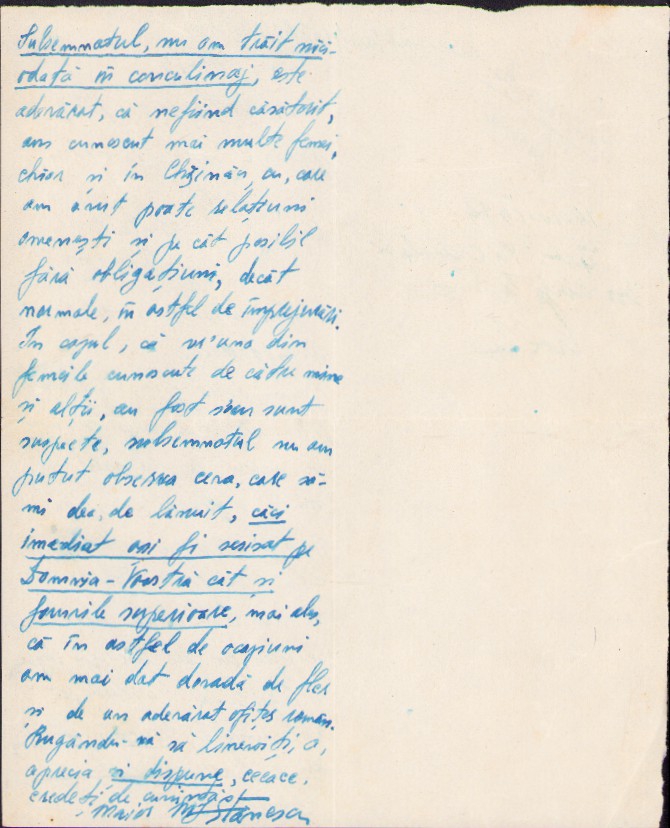 Subsemnatul, nu am trăit nici-
odată în concubinaj, este
adevărat, că nefiind căsătorit,
am cunoscut mai multe femei,
chiar și în Chișinău, cu care
am avut poate relațiuni
omenești și pe cât posibil
fără obligațiuni, decât
normale, în astfel de împrejurări.
În cazul, că vr'una din
femeile cunoscute de către mine
și alții, au fost sau sunt
suspecte, subsemnatul nu am
putut observa ceva, care să-
mi dea de bănuit, căci
imediat ași fi sesisat pe
Domnia-Voastră cât și
forurile superioare, mai ales,
că în astfel de ocaziuni
am mai dat dovadă de fler
și de un adevărat ofițer român.
Rugându-vă să binevoiți, a,
aprecia și dispune, ceeace
credeți de cuviință
Maior Stănescu